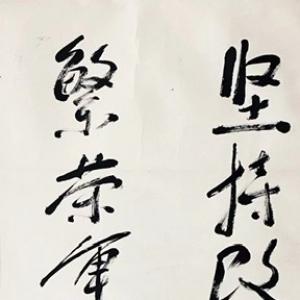 坚持改
繁荣军